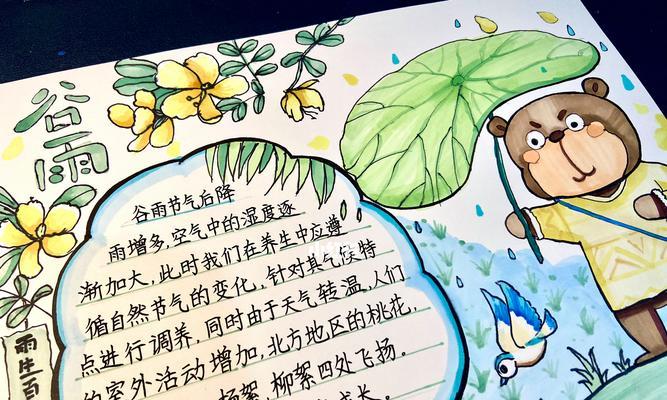 谷雨
谷雨节气后降
雨增多,空气中的湿度逐
渐加大,此时我们在养生中应遵
循自然节气的变化,针对其气候特
点进行调养,同时由于天气转温,人们
的室外活动增加,北方地区的桃花,
杨絮,柳絮四处飞扬。
成长。
雨生百